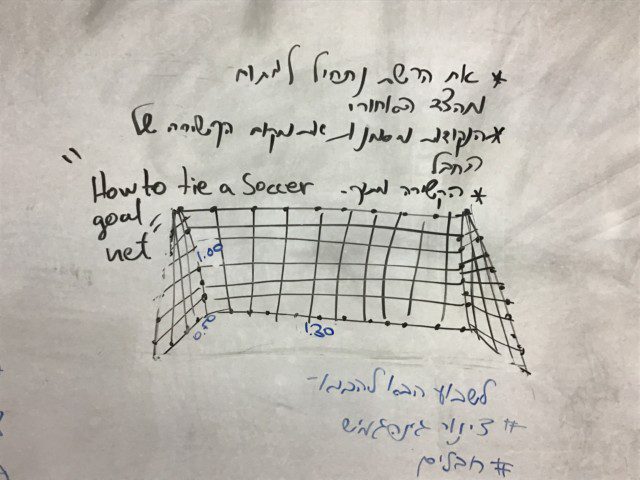 * את הרשת נתחיל למתוח
מהצד האחורי
* הנקודות מסמנות את מקום הקשירה של
החבל
* הקשירה
"How to tie a Soccer
goal
net"
1.00
0.50
1.30
לשבוע הבא להביא-
# צינור גינה גמיש
# חבלים